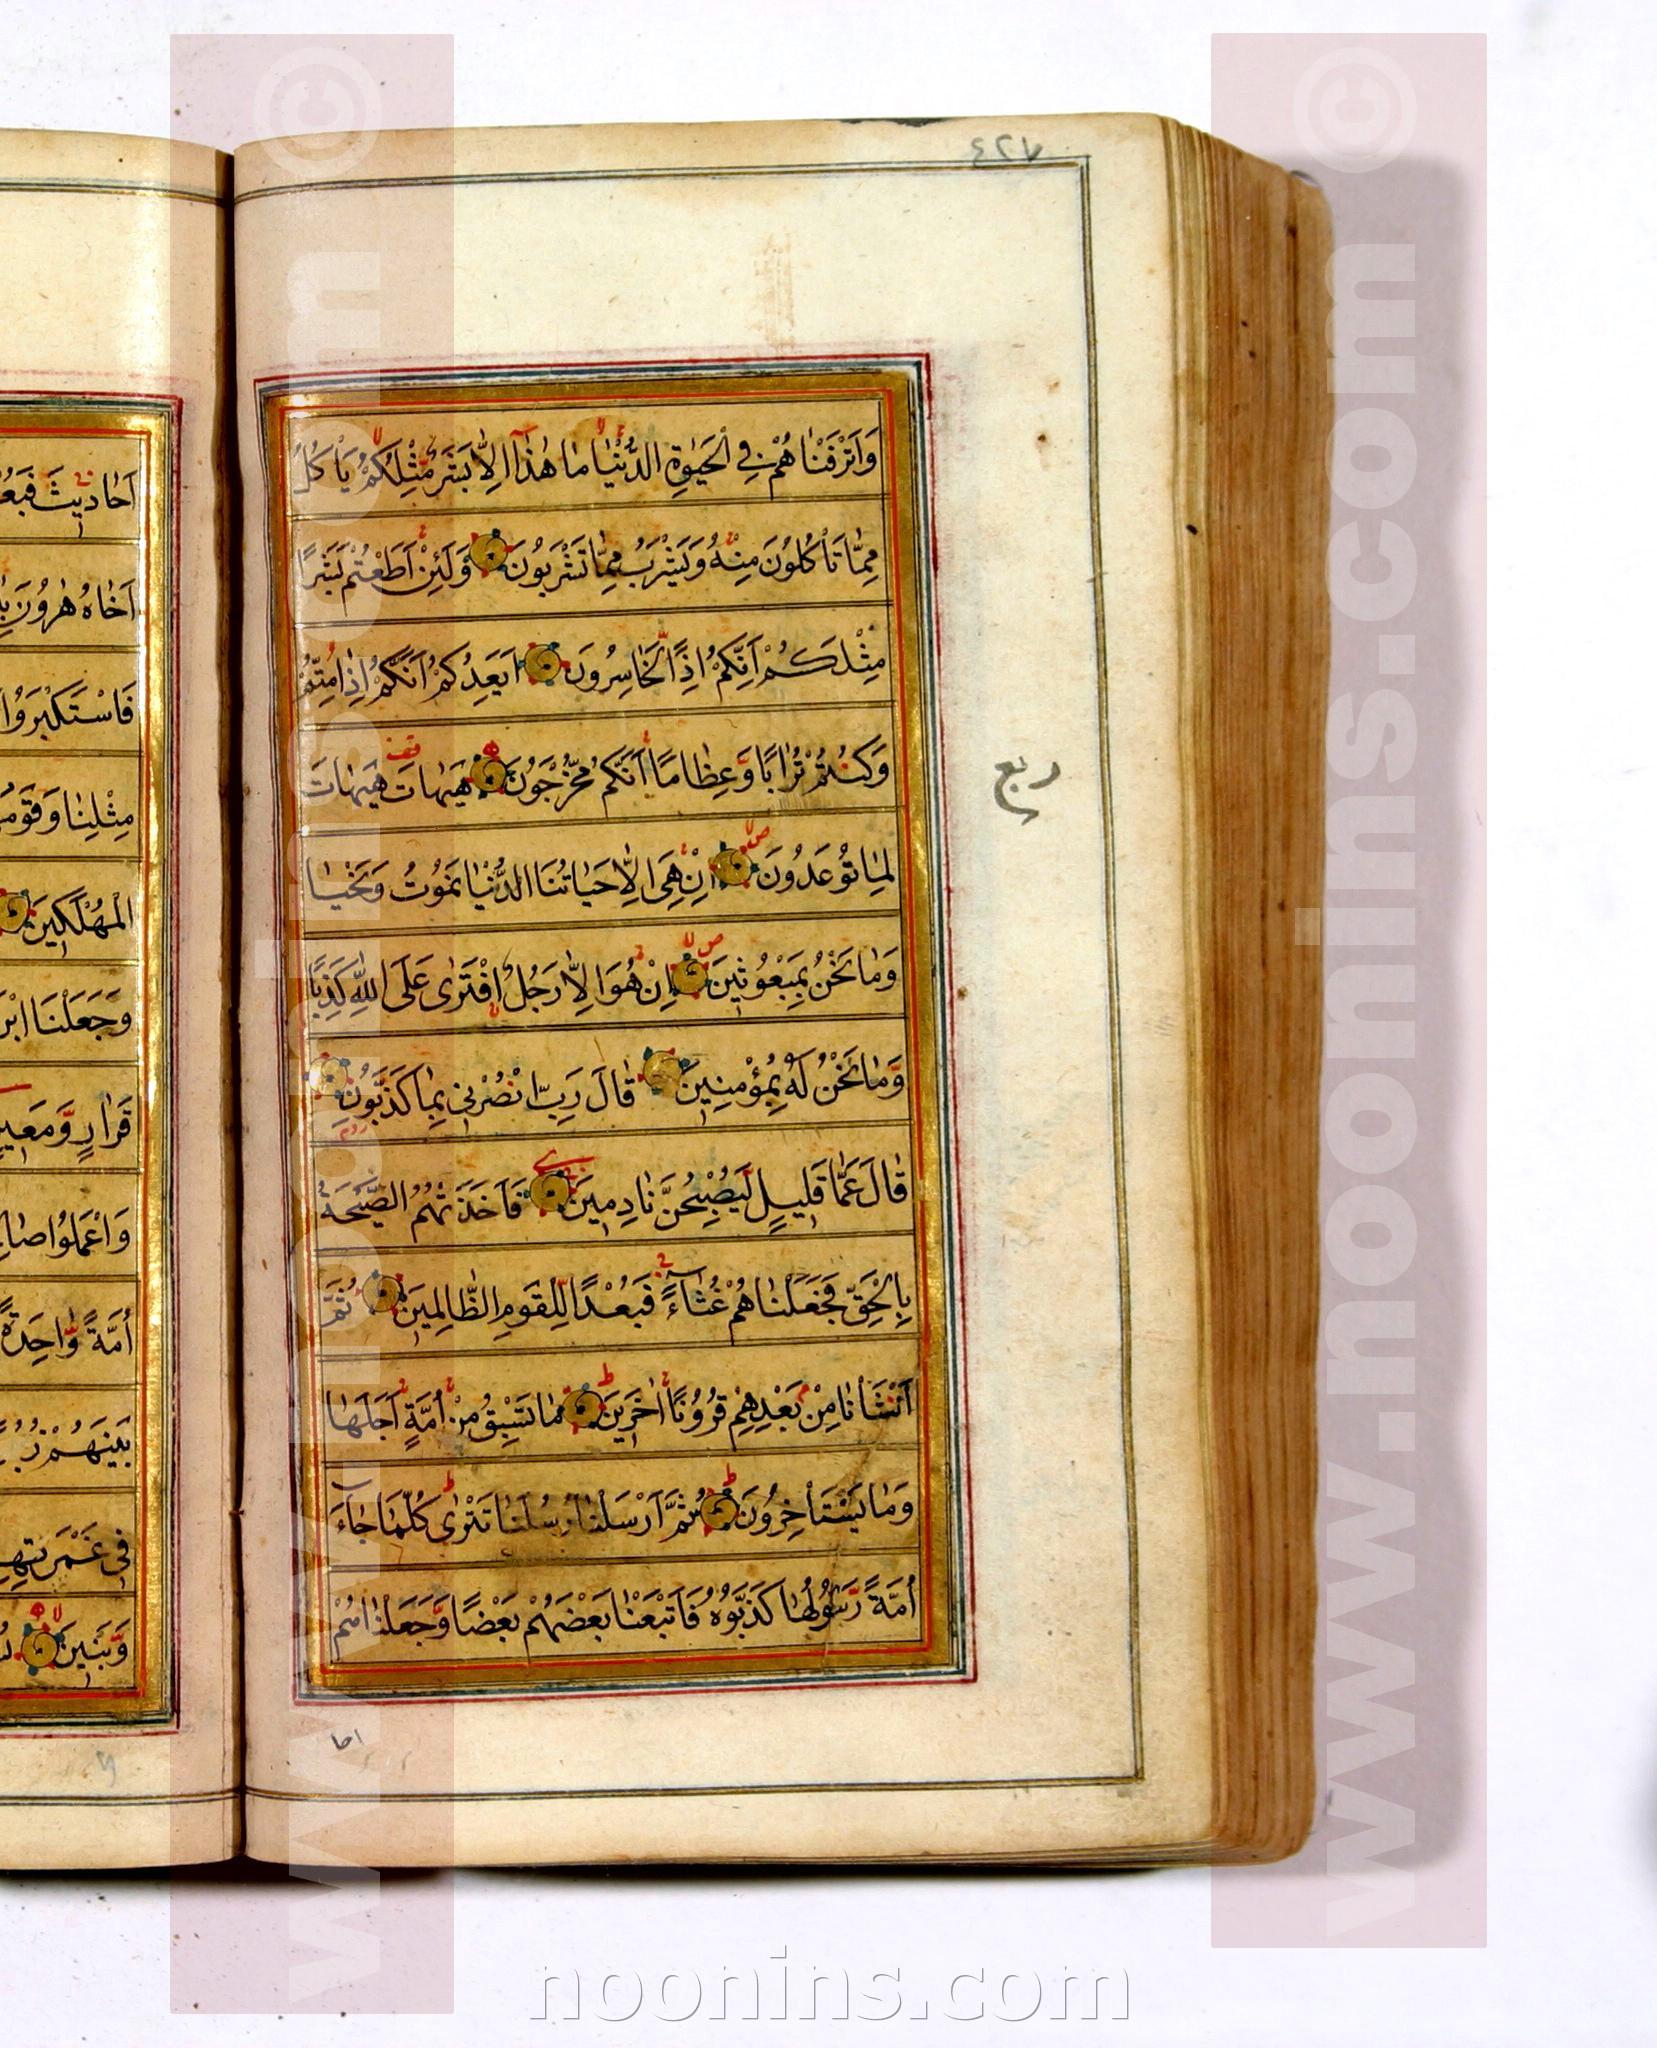 ٤٢٧
وَاَتْرَفْنٰاهُمْ فِى الْحَيٰوةِ الدُّنْيٰا مٰا هٰذٰا اِلاّٰ بَشَرٌ مِّثْلُكُمْ يَأْكُلُ
مِمّٰا تَأْكُلُونَ مِنْهُ وَيَشْرَبُ مِمّٰا تَشْرَبُونَ وَلَئِنْ اَطَعْتُمْ بَشَرًا
مِثْلَكُمْ اِنَّكُمْ اِذًا لَّخٰاسِرُونَ اَيَعِدُكُمْ اَنَّكُمْ اِذٰا مِتُّمْ
وَكُنْتُمْ تُرٰابًا وَّعِظٰامًا اَنَّكُمْ مُخْرَجُونَ هَيْهٰاتَ هَيْهٰاتَ
لِمٰا تُوعَدُونَ اِنْ هِىَ اِلاّٰ حَيٰاتُنَا الدُّنْيٰا نَمُوتُ وَنَحْيٰا
وَمٰا نَحْنُ بِمَبْعُوثِينَ اِنْ هُوَ اِلاّٰ رَجُلٌ افْتَرٰى عَلَى اللّٰهِ كَذِبًا
وَّمٰا نَحْنُ لَهُ بِمُؤْمِنِينَ قٰالَ رَبِّ انْصُرْنِى بِمٰا كَذَّبُونِ
قٰالَ عَمّٰا قَلِيلٍ لَيُصْبِحُنَّ نٰادِمِينَ فَاَخَذَتْهُمُ الصَّيْحَةُ
بِالْحَقِّ فَجَعَلْنٰاهُمْ غُثٰاءً فَبُعْدًا لِّلْقَوْمِ الظّٰالِمِينَ ثُمَّ
اَنْشَأْنٰا مِنْ بَعْدِهِمْ قُرُونًا اٰخَرِينَ مٰا تَسْبِقُ مِنْ اُمَّةٍ اَجَلَهٰا
وَمٰا يَسْتَأْخِرُونَ ثُمَّ اَرْسَلْنٰا رُسُلَنٰا تَتْرٰى كُلَّمٰا جٰاءَ
اُمَّةً رَّسُولُهٰا كَذَّبُوهُ فَاَتْبَعْنٰا بَعْضَهُمْ بَعْضًا وَّجَعَلْنٰاهُمْ
احا
ربع
اَحٰادِيثَ فَبُعْ
اَخٰاهُ هٰرُونَ بِاٰ
فَاسْتَكْبَرُوا
مِثْلِنٰا وَقَوْمُ
الْمُهْلَكِينَ
وَجَعَلْنَا ابْنَ
قَرٰارٍ وَّمَعِينٍ
وَاعْمَلُوا صٰالِ
اُمَّةً وّٰاحِدَةً
بَيْنَهُمْ زُبُرً
فِى غَمْرَتِهِ
وَّبَنِينَ
© www.noonins.com
© www.noonins.com
noonins.com